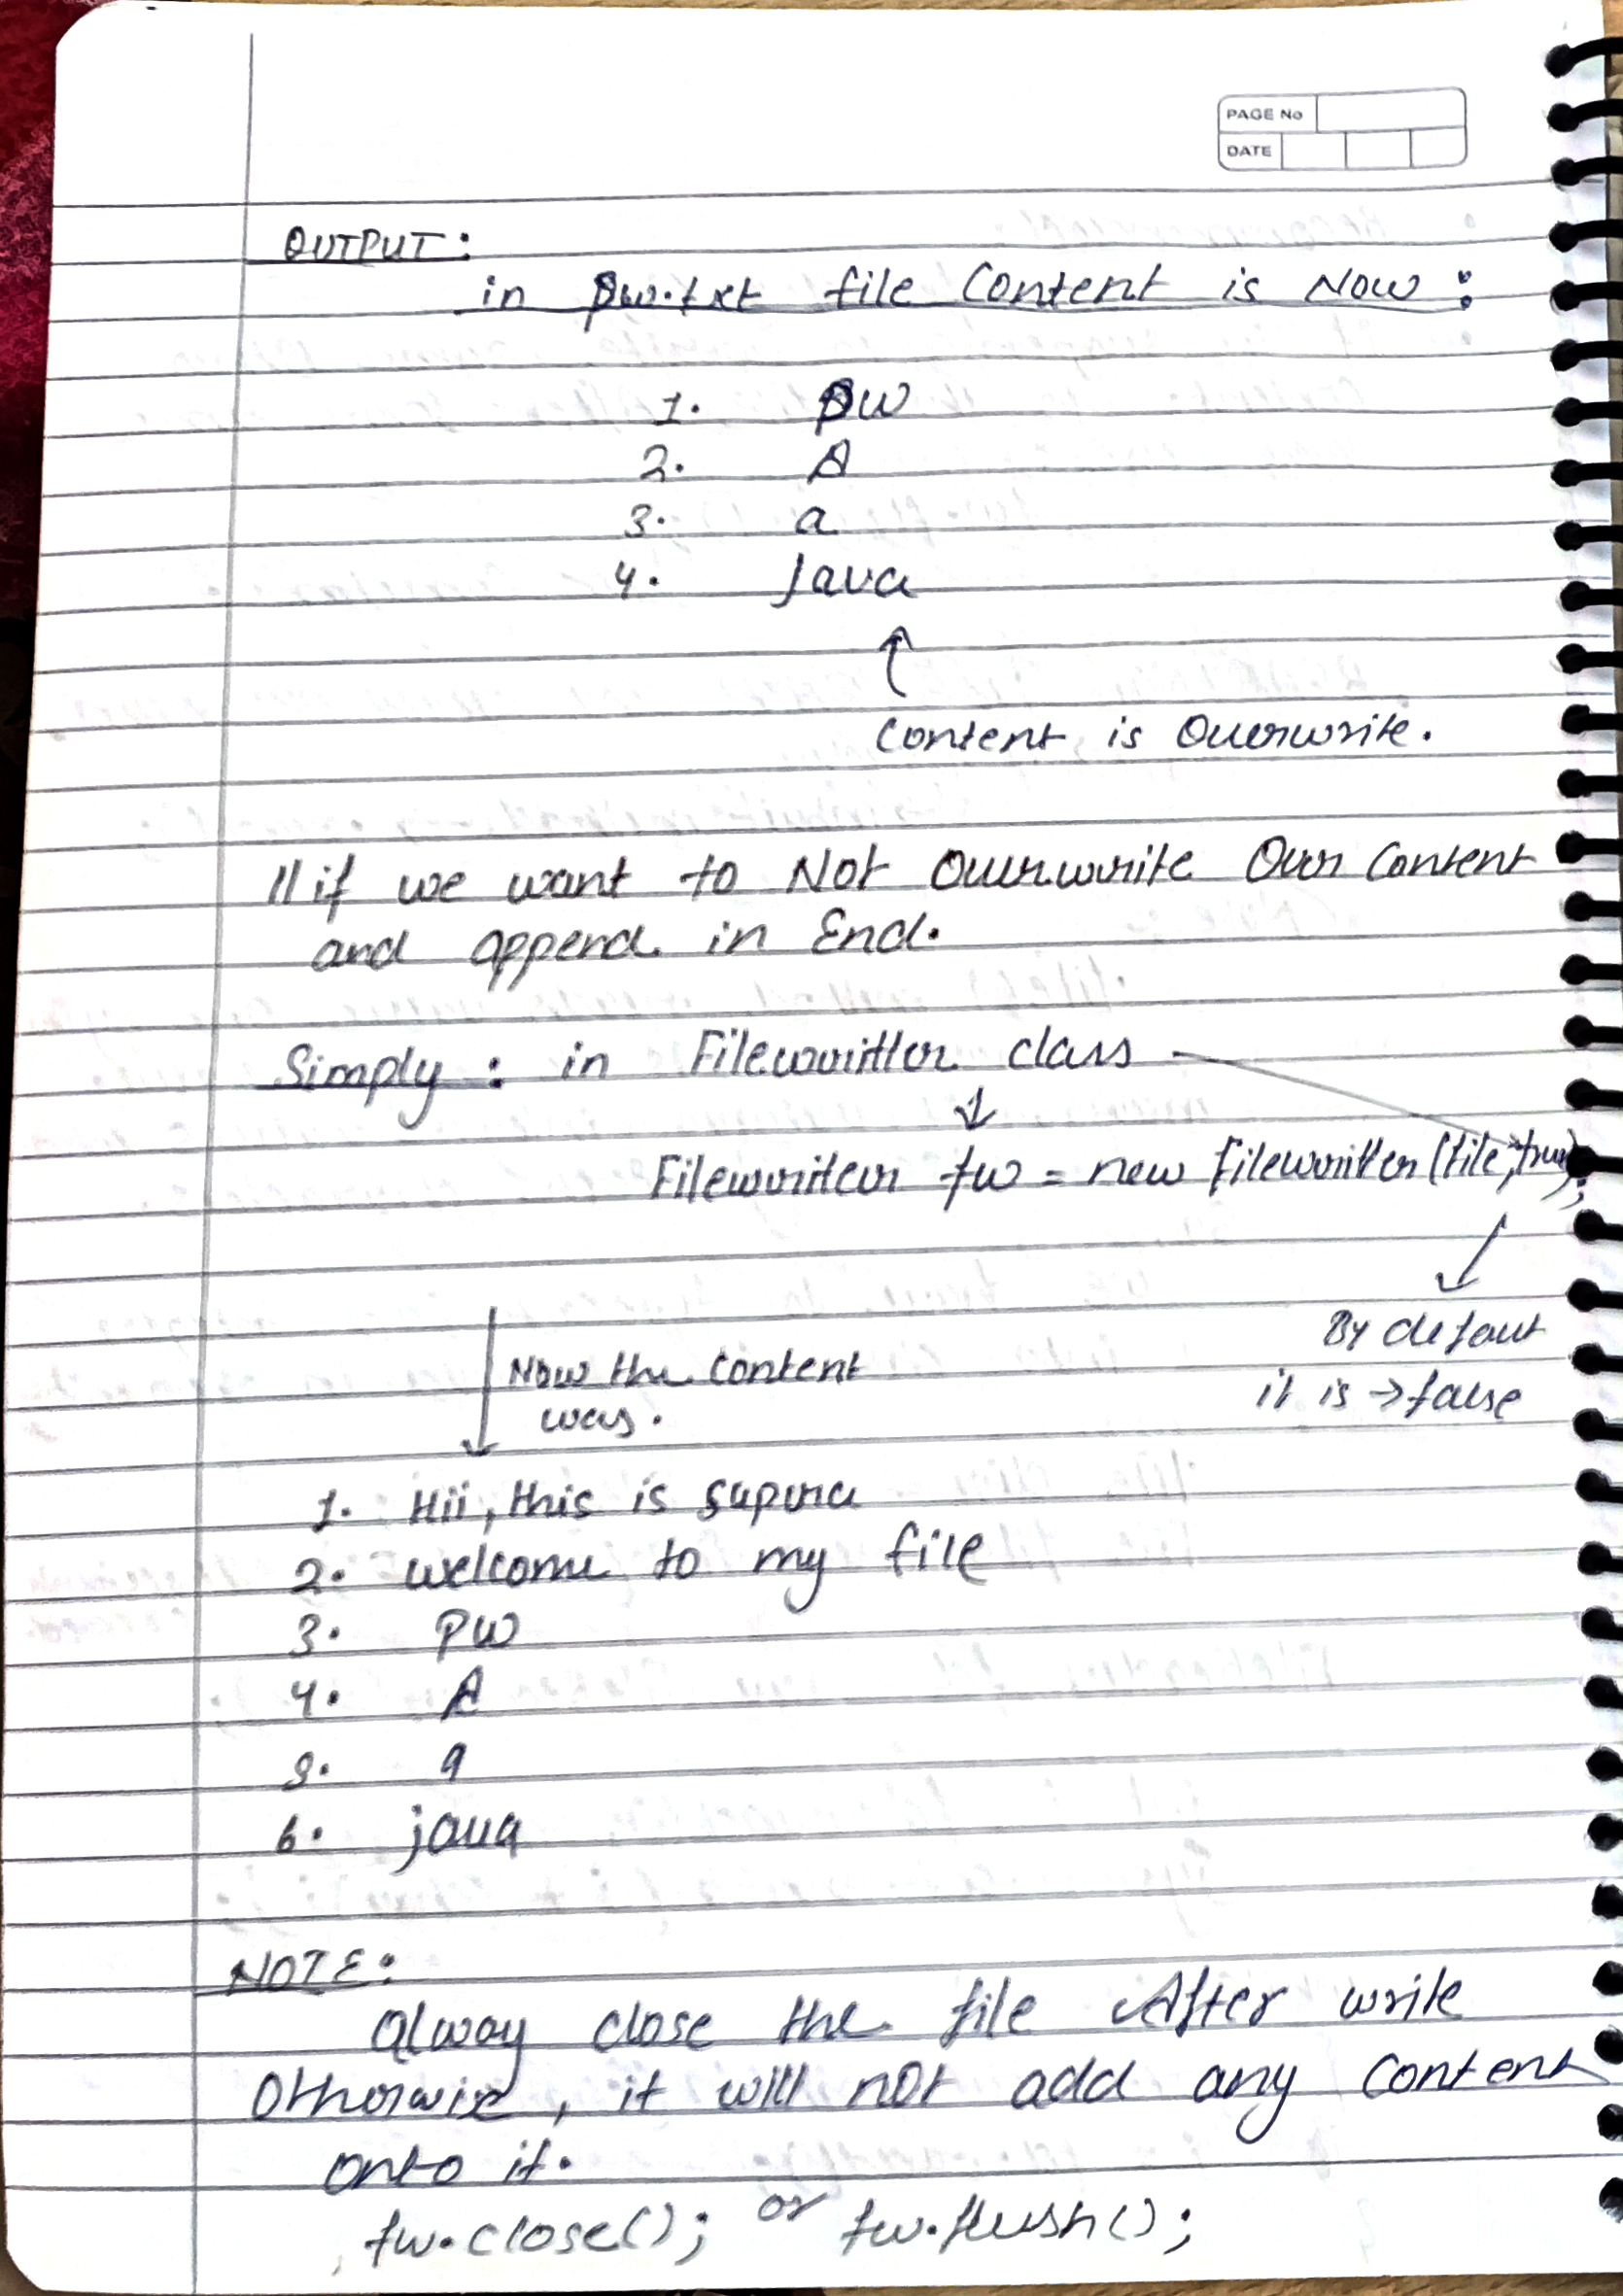 PAGE No
DATE
OUTPUT:
in pw.txt file Content is Now:
1. pw
2. A
3. a
4. Java
Content is Overwrite.
// if we want to Not Overwrite Our Content
and append in End.
Simply: in Filewritter class
Filewriter fw = new filewritter(file, true);
By defaut
it is → false
Now the content
was.
1. Hii, this is
2. welcome to my file
3. PW
4. A
5. a
6. java
NOTE:
Alway close the file After write
Otherwise, it will not add any content
onto it.
fw.close(); or fw.flush();